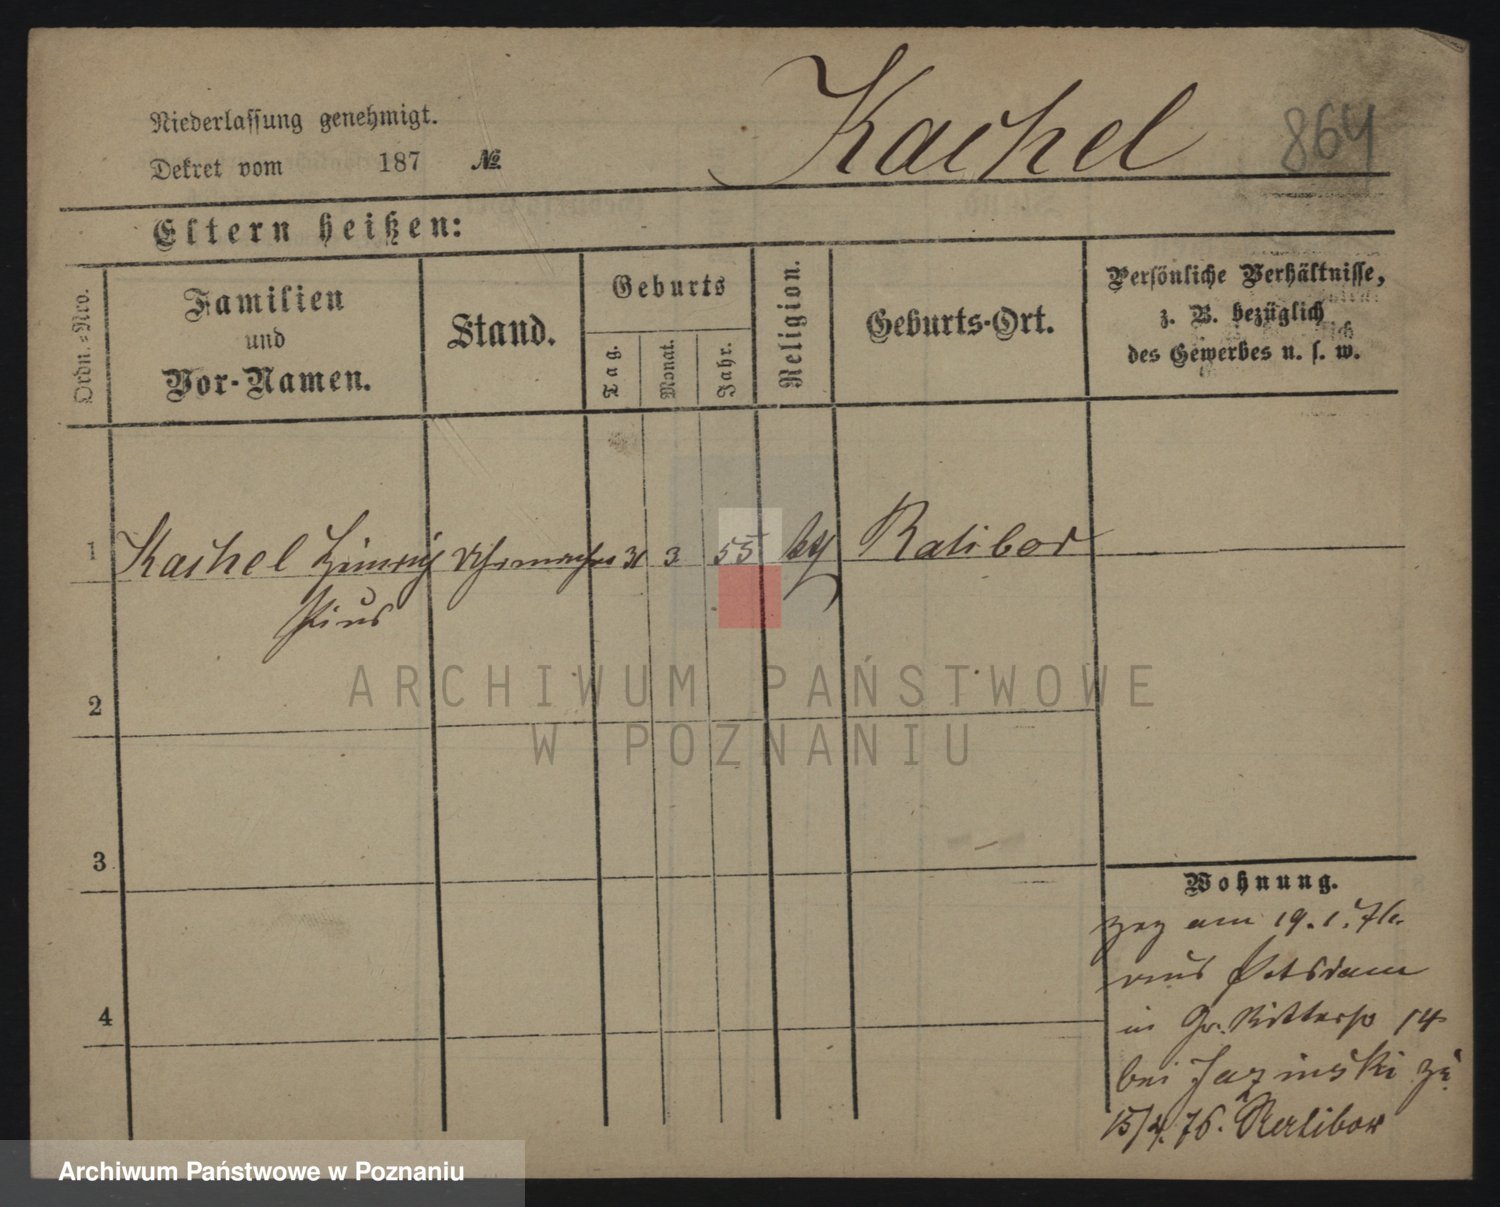 Niederlassung genehmigt.
Dekret vom 187 №
Kachel 864
Eltern heißen:
Ordn.-Nro.
Familien
und
Vor-Namen.
Stand.
Geburts
Tag.
Monat.
Jahr.
Religion.
Geburts-Ort.
Persönliche Verhältnisse,
z. B. bezüglich
des Gewerbes u. s. w.
1 Kachel Heinrich Uhrmacher 31 3 55 Ratibor
Pius
2
3
4
Wohnung.
am 19.1.76.
aus Potsdam
in Gr. Ritterstr 14
bei Jazinski
15/4.76. Ratibor
ARCHIWUM PAŃSTWOWE
W POZNANIU
Archiwum Państwowe w Poznaniu